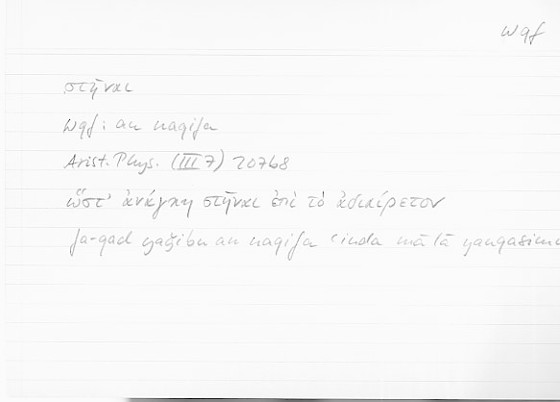 wqf
στῆναι
wqf: an naqifa
Arist. Phys. (III 7) 207b8
ὥστ' ἀνάγκη στῆναι ἐπὶ τὸ ἀδιαίρετον
fa-qad yaǧibu an naqifa ʿinda mā lā yanqasimu